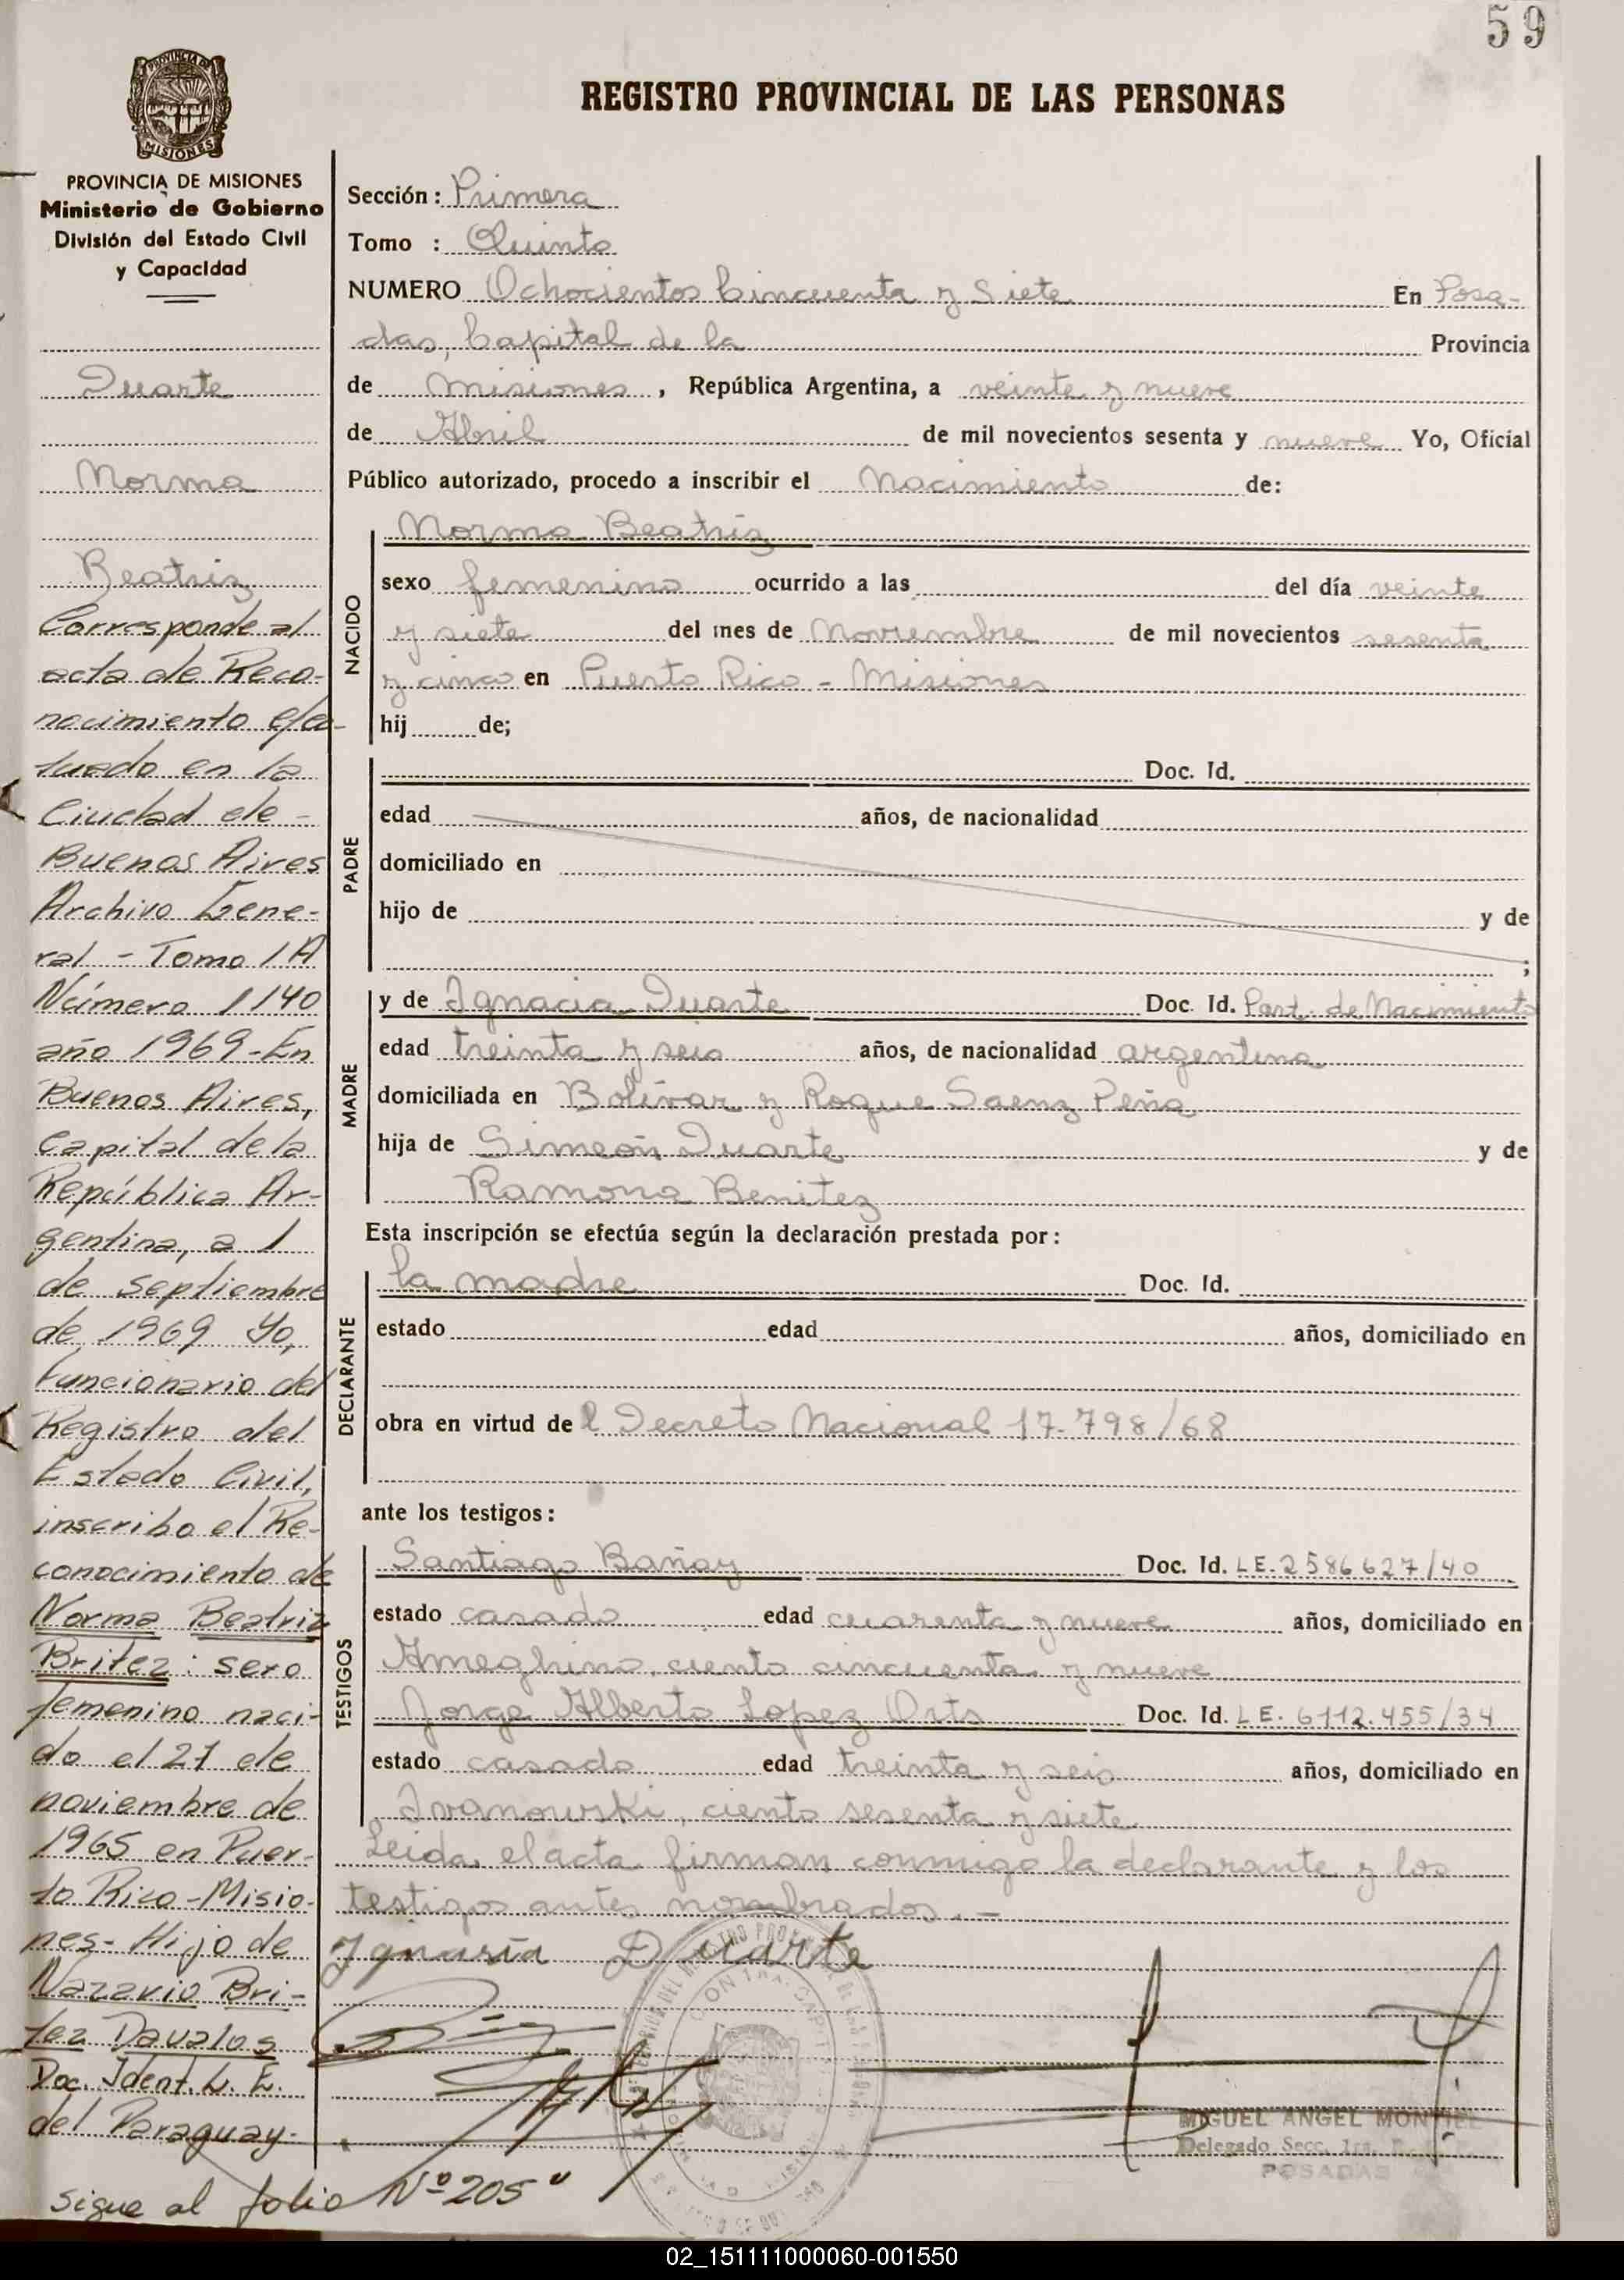 59
REGISTRO PROVINCIAL DE LAS PERSONAS
PROVINCIA DE
MISIONES
PROVINCIA DE MISIONES
Ministerio de Gobierno
División del Estado Civil
y Capacidad
Duarte
Norma
Beatriz
Corresponde al
acta de Reco-
nocimiento efec-
tuado en la
Ciudad de -
Buenos Aires
Archivo Gene-
ral - Tomo 1A
Número 1140
año 1969-En
Buenos Aires,
Capital de la
República Ar-
gentina, a 1
de septiembre
de 1969 Yo,
Funcionario del
Registro del
Estado Civil,
inscribo el Re-
conocimiento de
Norma Beatriz
Britez: sexo
femenino naci-
do el 27 de
noviembre de
1965 en Puer-
to Rico-Misio-
nes- Hijo de
Nazario Bri-
tez Davalos
Doc. Ident. L. E.
del Paraguay-
sigue al folio Nº 205"
Sección: Primera
Tomo : Quinto
NUMERO Ochocientos Cincuenta y Siete En Posa-
das, Capital de la Provincia
de Misiones, República Argentina, a veinte y nueve
de Abril de mil novecientos sesenta y nueve Yo, Oficial
Público autorizado, procedo a inscribir el Nacimiento de:
NACIDO
Norma Beatriz
sexo femenino ocurrido a las del día veinte
y siete del mes de Noviembre de mil novecientos sesenta
y cinco en Puerto Rico - Misiones
hij de;
PADRE
Doc. Id.
edad años, de nacionalidad
domiciliado en
hijo de y de
;
MADRE
y de Ignacia Duarte Doc. Id. Part. de Nacimiento
edad treinta y seis años, de nacionalidad argentina
domiciliada en Bolívar y Roque Saenz Peña
hija de Simeón Duarte y de
Ramona Benitez
Esta inscripción se efectúa según la declaración prestada por:
DECLARANTE
la madre Doc. Id.
estado edad años, domiciliado en
obra en virtud del Decreto Nacional 17.798/68
ante los testigos:
TESTIGOS
Santiago Bañay Doc. Id. LE. 2586627/40
estado casado edad cuarenta y nueve años, domiciliado en
Ameghino, ciento cincuenta y nueve
Jorge Alberto Lopez Orts Doc. Id. LE. 6112.455/34
estado casado edad treinta y seis años, domiciliado en
Ivanowski, ciento sesenta y siete
Leida el acta firman conmigo la declarante y los
testigos antes nombrados. -
Ignasia Duarte
MIGUEL ANGEL MONTIEL
Delegado Secc. 1ra.
POSADAS
02_151111000060-001550